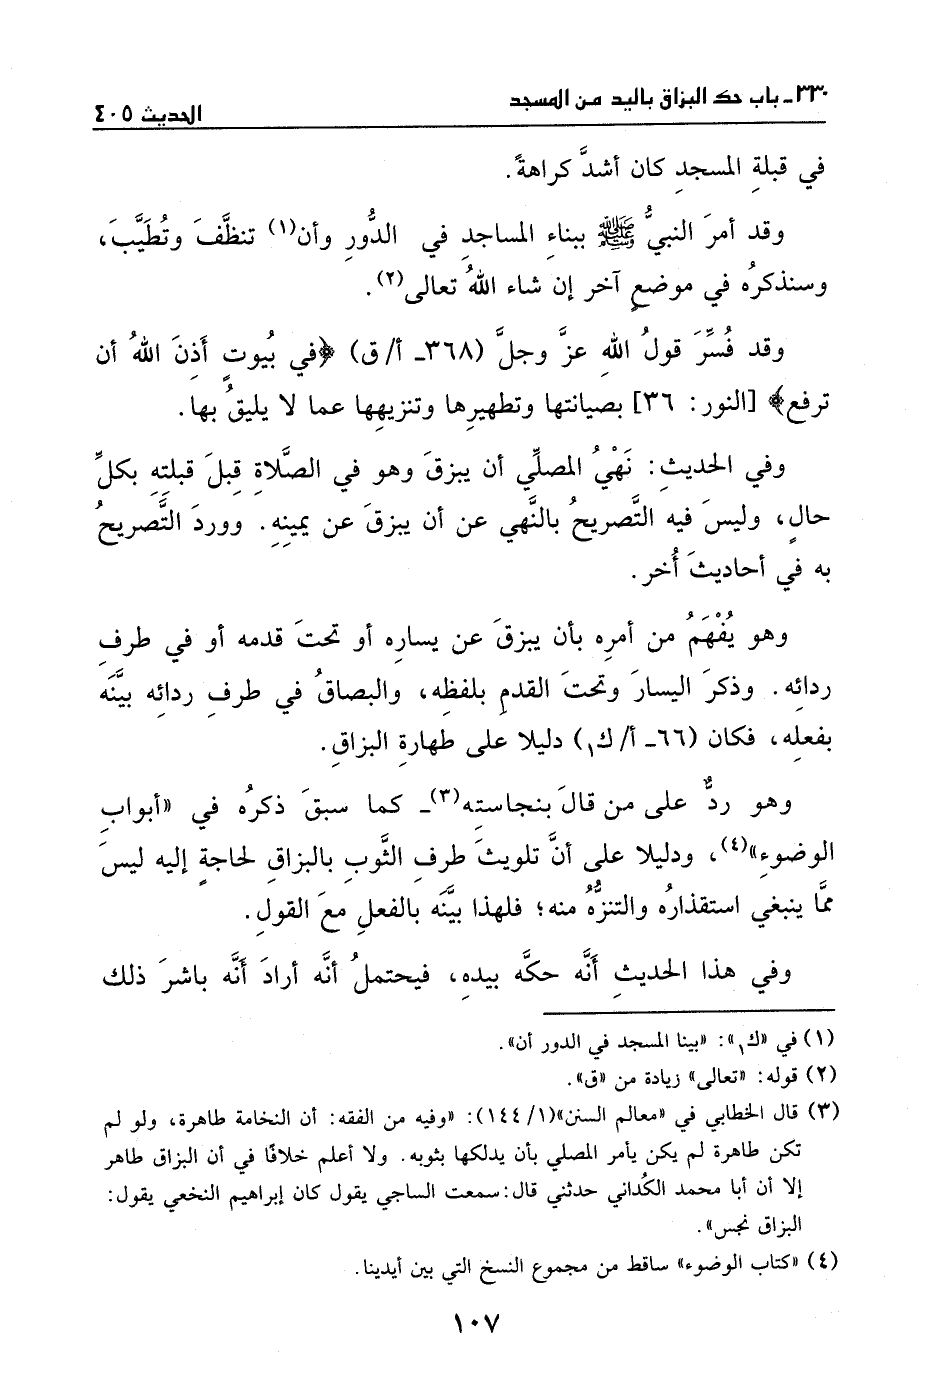 ٣٣٠ـ باب حك البزاق باليد من المسجد
الحديث ٤٠٥
في قبلةِ المسجدِ كان أشدَّ كراهةً.
وقد أمرَ النبيُّ ﷺ ببناءِ المساجدِ في الدُّورِ وأن(١) تنظَّفَ وتُطَيَّبَ،
وسنذكرُه في موضعٍ آخر إن شاء اللهُ تعالى(٢).
وقد فُسِّرَ قولُ اللهِ عزَّ وجلَّ (٣٦٨ـ أ/ ق) ﴿في بُيوتٍ أَذِنَ اللهُ أن
ترفع﴾ [النور: ٣٦] بصيانتها وتطهيرِها وتنزيهِها عما لا يليقُ بها.
وفي الحديثِ: نَهْيُ المصلِّي أن يبزقَ وهو في الصَّلاةِ قِبلَ قبلتِهِ بكلِّ
حالٍ، وليسَ فيه التَّصريحُ بالنَّهي عن أن يبزقَ عن يمينِهِ. ووردَ التَّصريحُ
به في أحاديثَ أُخر.
وهو يُفْهَمُ من أمرِه بأن يبزقَ عن يسارِه أو تحتَ قدمه أو في طرفِ
ردائِه. وذكرَ اليسارَ وتحتَ القدمِ بلفظِه، والبصاقُ في طرفِ ردائِه بيَّنَه
بفعلِه، فكان (٦٦ـ أ/ ك١) دليلا على طهارةِ البزاقِ.
وهو ردٌّ على من قالَ بنجاستِه(٣)ـ كما سبقَ ذكرُه في «أبوابِ
الوضوءِ»(٤)، ودليلا على أنَّ تلويثَ طرفِ الثَّوبِ بالبزاقِ لحاجةٍ إليه ليسَ
ممَّا ينبغي استقذارُه والتنزُّهُ منه؛ فلهذا بيَّنَه بالفعلِ معَ القولِ.
وفي هذا الحديثِ أنَّه حكَّه بيدِهِ، فيحتملُ أنَّه أرادَ أنَّه باشرَ ذلك
(١) في «ك١»: «بينا المسجد في الدور أن».
(٢) قوله: «تعالى» زيادة من «ق».
(٣) قال الخطابي في «معالم السنن»(١/ ١٤٤): «وفيه من الفقه: أن النخامة طاهرة، ولو لم
تكن طاهرة لم يكن يأمر المصلي بأن يدلكها بثوبه. ولا أعلم خلافًا في أن البزاق طاهر
إلا أن أبا محمد الكُداني حدثني قال: سمعت الساجي يقول كان إبراهيم النخعي يقول:
البزاق نجس».
(٤) «كتاب الوضوء» ساقط من مجموع النسخ التي بين أيدينا.
١٠٧